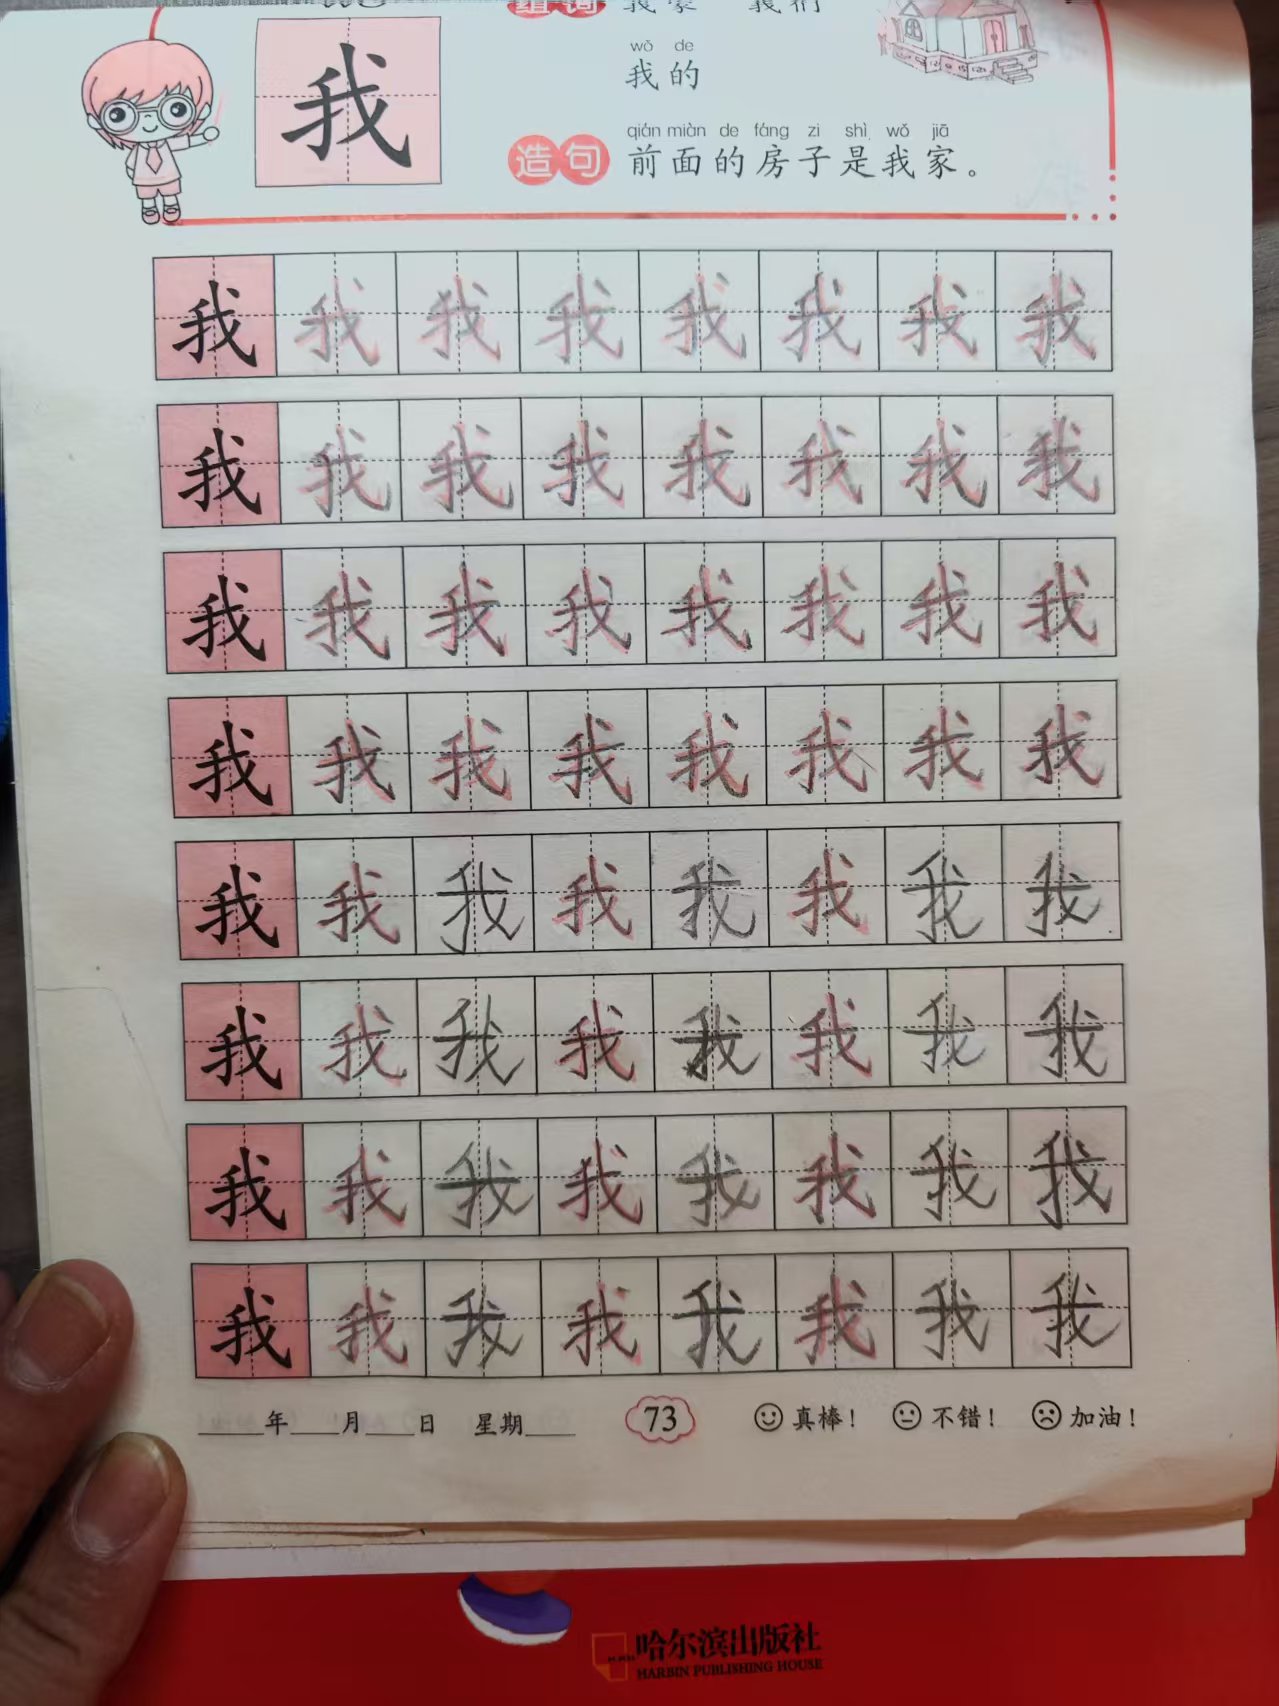 组词 我家 我们
wǒ de
我的
qián miàn de fáng zi shì wǒ jiā
造句 前面的房子是我家。
我
我 我 我 我 我 我 我 我
我 我 我 我 我 我 我 我
我 我 我 我 我 我 我 我
我 我 我 我 我 我 我 我
我 我 我 我 我 我 我 我
我 我 我 我 我 我 我 我
我 我 我 我 我 我 我 我
我 我 我 我 我 我 我 我
____年____月____日 星期____ 73 真棒! 不错! 加油!
哈尔滨出版社
HARBIN PUBLISHING HOUSE